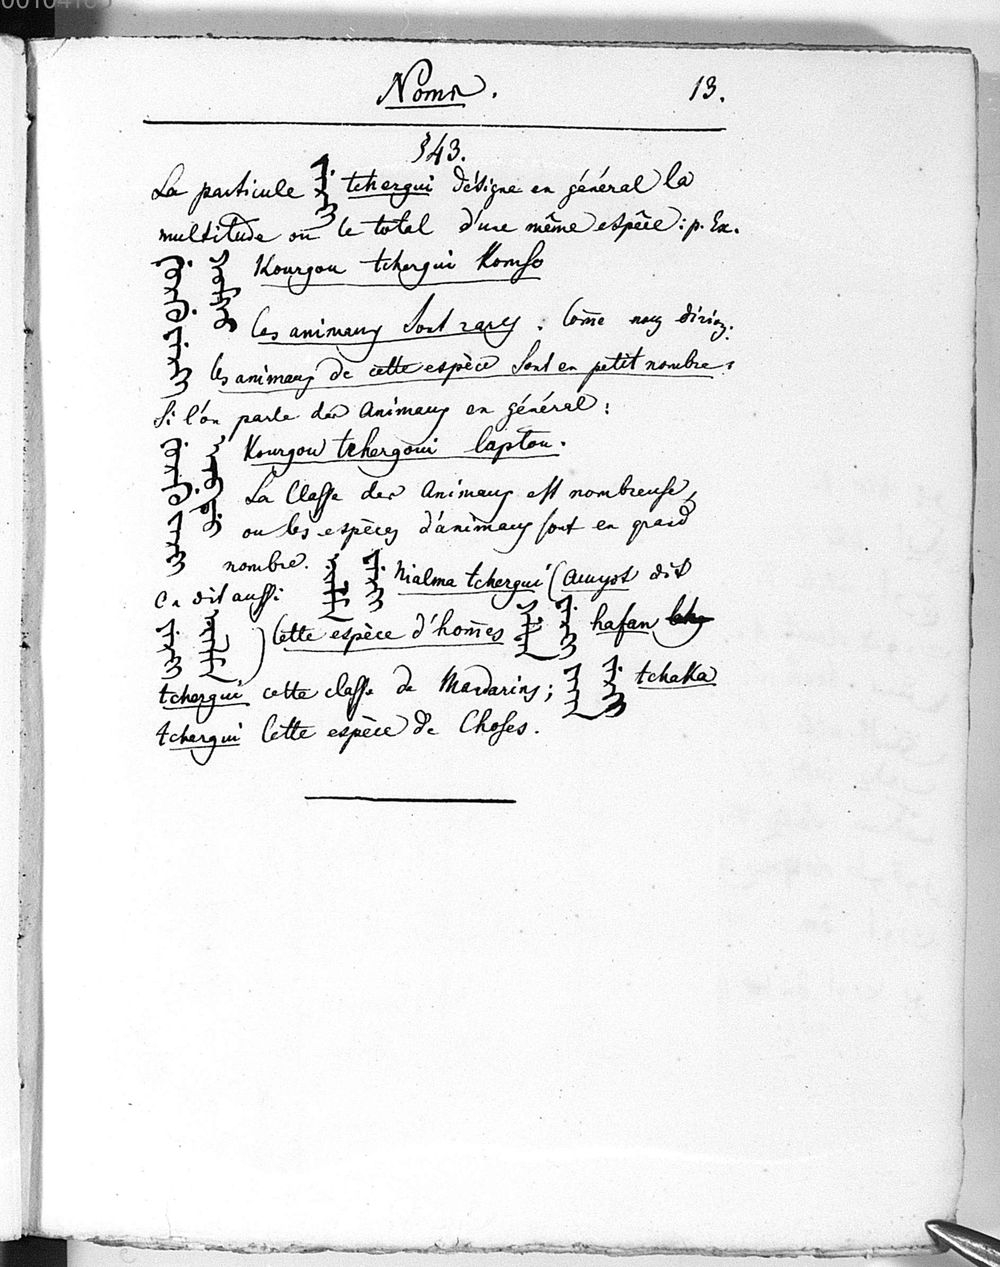 Noms.
13.
§43.
La particule ᠵᡝᡵᡤᡳ tchergui désigne en général la
multitude ou le total d'une même espêce: p. Ex.
Kourgou tchergui Komso
les animaux sont rares. Come nous dirions.
les animaux de cette espèce sont en petit nombre;
Si l'on parle des animaux en général:
Kourgou tchergoui laptou.
La Classe des animaux est nombreuse,
ou les espèces d'animaux sont en grand
nombre.
On dit aussi nialma tchergui (amyot dit
) Cette espèce d'homes hafan
tchergui cette classe de Mandarins; tchaka
tchergui Cette espèce de Choses.